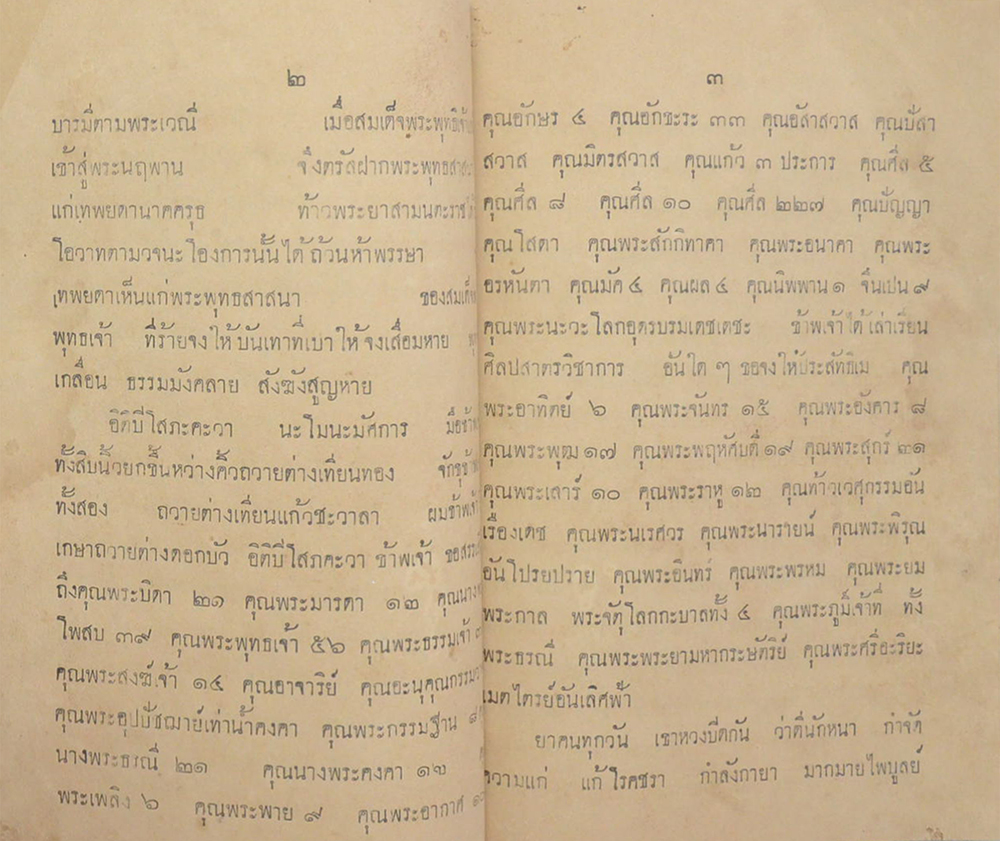 ๒
บารมีตามพระเวณี เมื่อสมเด็จพระพุทธิ
เข้าสู่พระนฤพาน จึงตรัสฝากพระพุทธ
แก่เทพยดานาคครุธ ท้าวพระยาสามนตะราช
โอวาทตามวจนะโองการนั้นได้ถ้วนห้าพรรษา
เทพยดาเห็นแก่พระพุทธสาสนา ของสมเด็จ
พุทธเจ้า ที่ร้ายจงให้บันเทาที่เบาให้จงเสื่อมหาย
เกลื่อน ธรรมมังคลาย สังฆังสูญหาย
อิติปิโสภะคะวา นะโมนะมัศการ มือข้า
ทั้งสิบนิ้วยกขึ้นหว่างคิ้วถวายต่างเทียนทอง จักขุข้า
ทั้งสอง ถวายต่างเทียนแก้วชะวาลา ผมข้าพเจ้า
เกษาถวายต่างดอกบัว อิติปิโสภคะวา ข้าพเจ้า ขอ
ถึงคุณพระบิดา ๒๑ คุณพระมารดา ๑๒ คุณนาง
โพสบ ๓๙ คุณพระพุทธเจ้า ๕๖ คุณพระธรรมเจ้า
คุณพระสงฆ์เจ้า ๑๔ คุณอาจาริย์ คุณอะนุคุณกรรม
คุณพระอุปัชฌาย์เท่าน้ำคงคา คุณพระกรรมฐาน
นางพระธรณี ๒๑ คุณนางพระคงคา ๑๒
พระเพลิง ๖ คุณพระพาย ๙ คุณพระอากาศ
๓
คุณอักษร ๔ คุณอักขะระ ๓๓ คุณอัสาสวาส คุณปัสา
สวาส คุณมิตรสวาส คุณแก้ว ๓ ประการ คุณศีล ๕
คุณศีล ๘ คุณศีล ๑๐ คุณศีล ๒๒๗ คุณปัญญา
คุณโสดา คุณพระสักกิทาคา คุณพระอนาคา คุณพระ
อรหันตา คุณมัค ๔ คุณผล ๔ คุณนิพพาน ๑ จึนเปน ๙
คุณพระนะวะโลกอุดรบรมเดชเดชะ ข้าพเจ้าได้เล่าเรียน
ศิลปสาตรวิชาการ อันใด ๆ ขอจงให้ประสัทธิเม คุณ
พระอาทิตย์ ๖ คุณพระจันทร ๑๕ คุณพระอังคาร ๘
คุณพระพุฒ ๑๗ คุณพระพฤหัศบดี ๑๙ คุณพระสุกร์ ๓๑
คุณพระเสาร์ ๑๐ คุณพระราหู ๑๒ คุณท้าวเวศุกรรมอัน
เรืองเดช คุณพระนเรศวร คุณพระนารายน์ คุณพระพิรุณ
อันโปรยปราย คุณพระอินทร์ คุณพระพรหม คุณพระยม
พระกาล พระจัตุโลกกะบาลทั้ง ๔ คุณพระภูมิ์เจ้าที่ ทั้ง
พระธรณี คุณพระพระยามหากระษัตริย์ คุณพระศรีอะริยะ
เมตไตรย์อันเลิศฟ้า
ยาคนทุกวัน เขาหวงปีดกัน ว่าดีนักหนา กำจัด
ความแก่ แก้โรคชรา กำลังกายา มากมายไพบูลย์